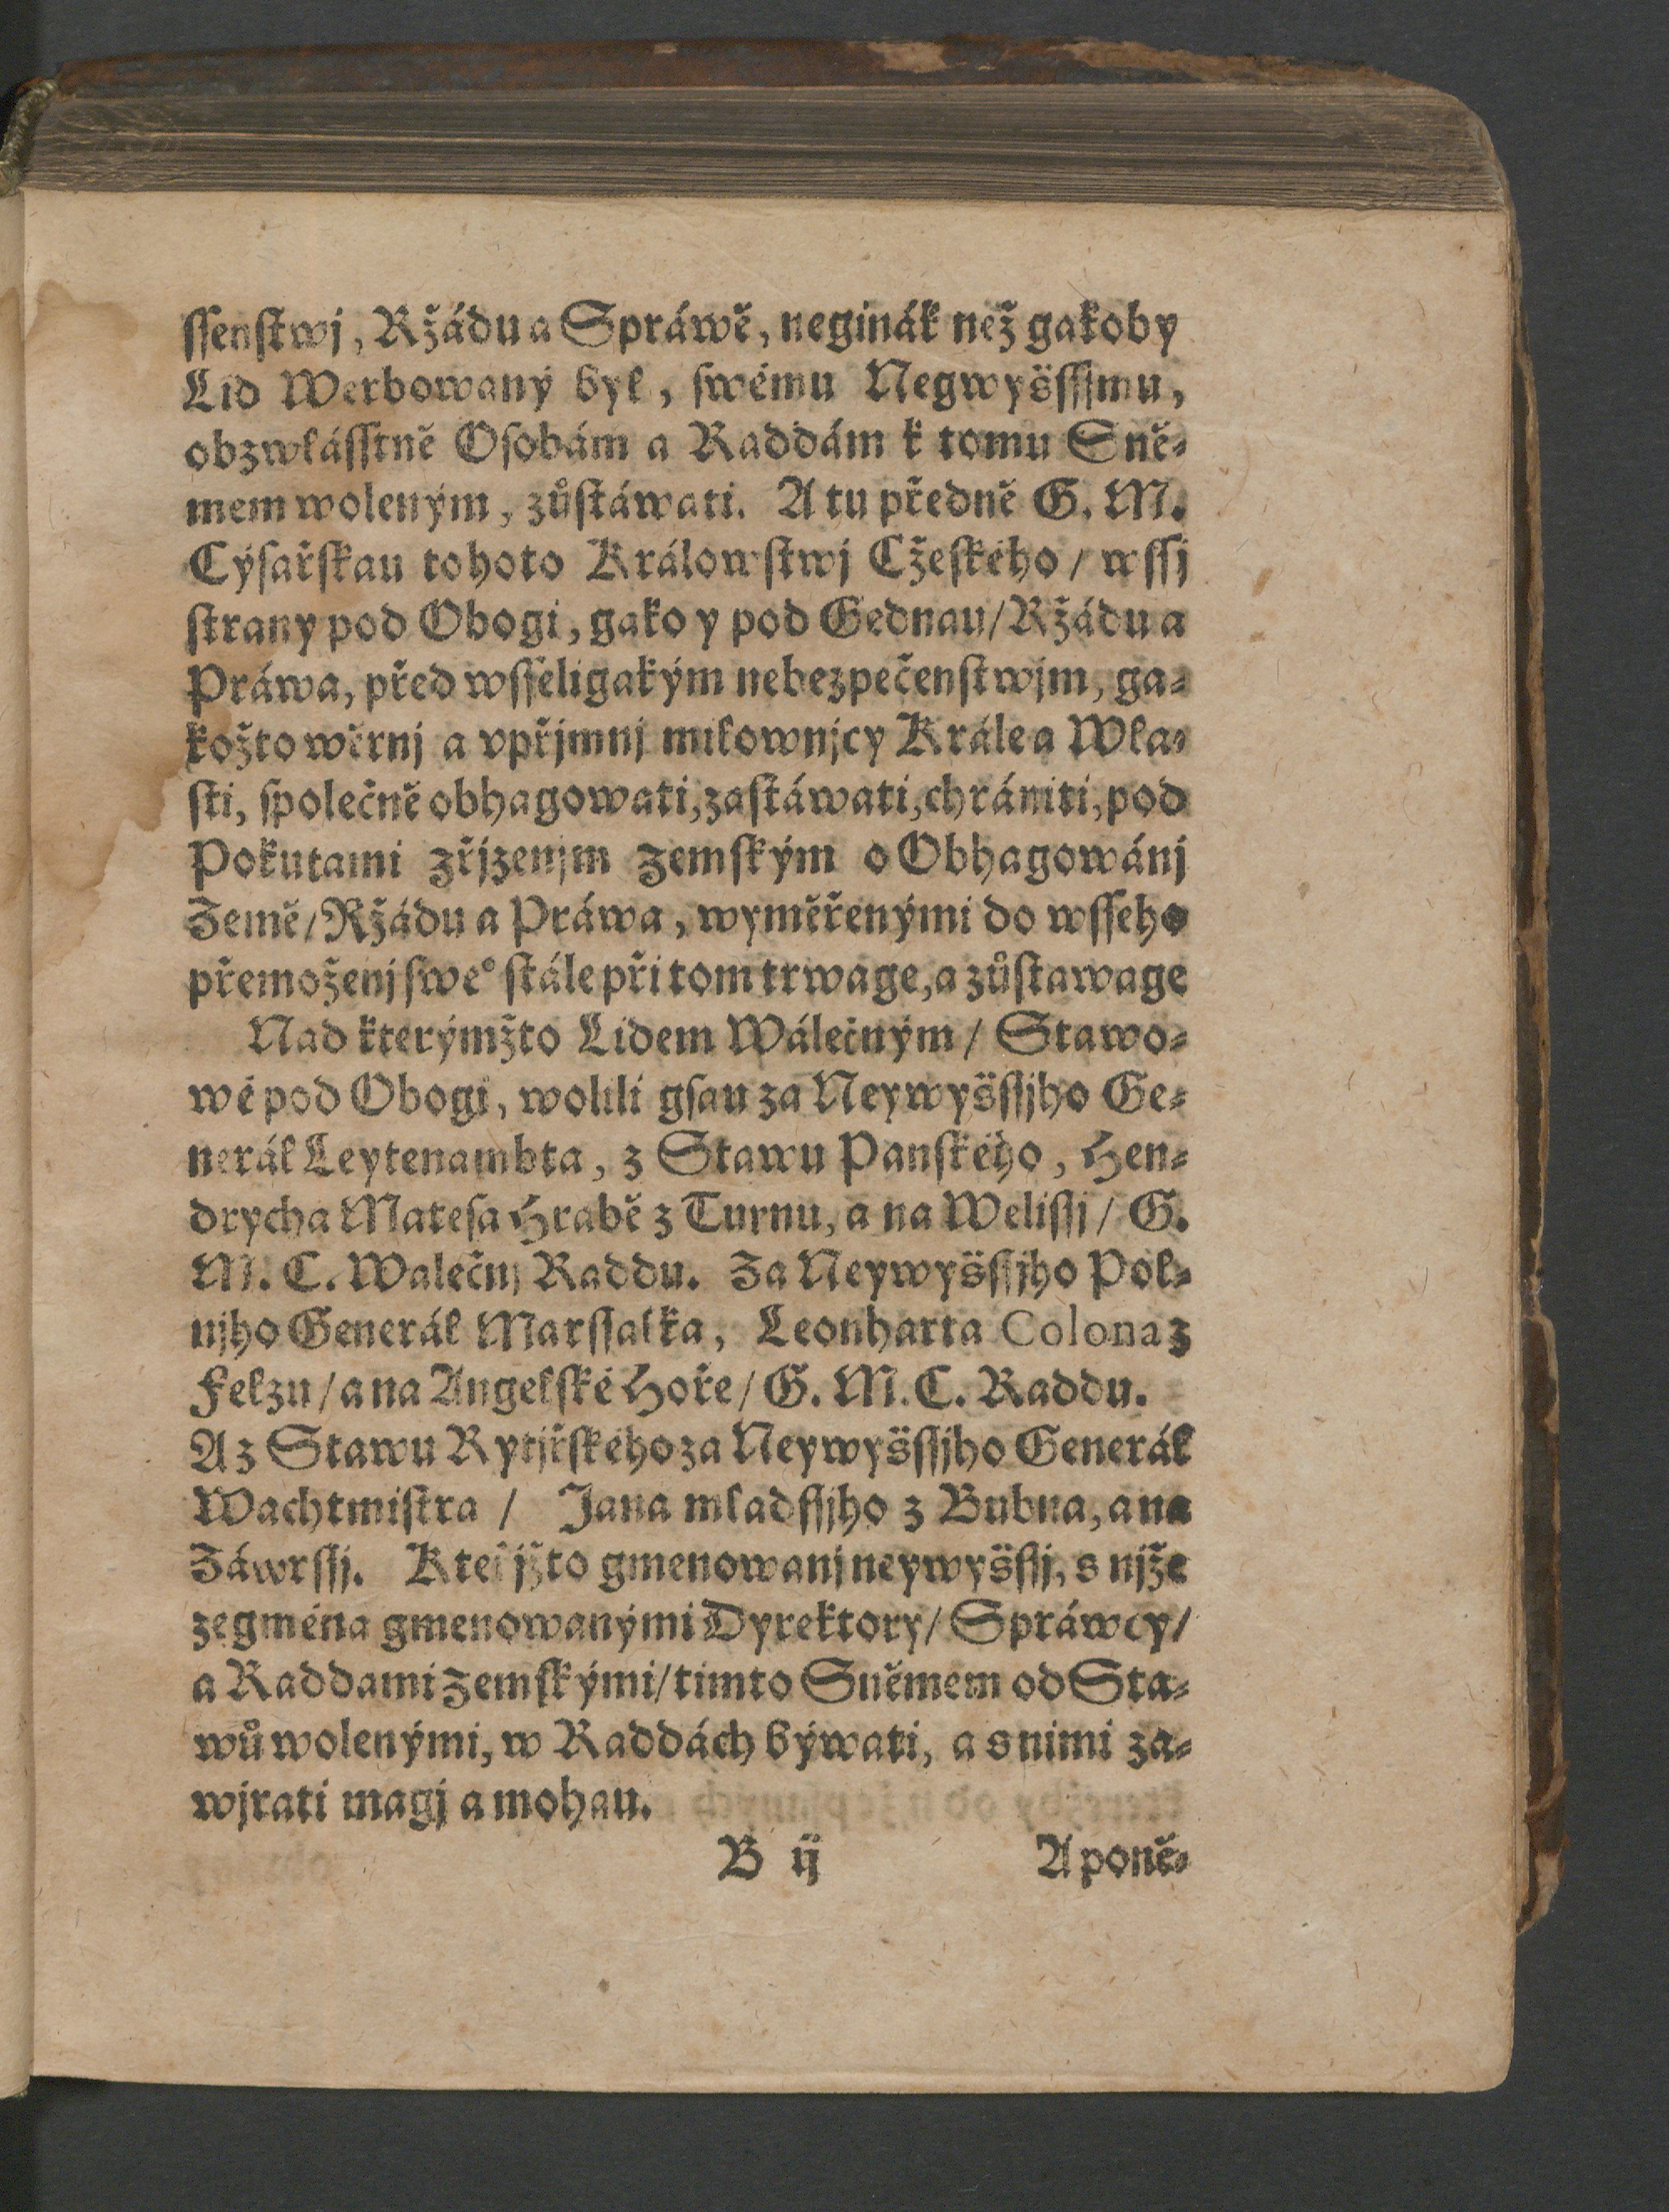 ſſenſtwj, Ržádu a Spráwě, neginák než gakoby
Lid Werbowaný byl, ſwému Negwyšſſjmu,
obzwláſſtně Oſobám a Raddám k tomu Sně⸗
mem woleným, zůſtáwati. A tu předně G. M.
Cýſařſkau tohoto Králowſtwj Cžeſkého / wſſj
ſtrany pod Obogi, gako y pod Gednau / Ržádu a
Práwa, před wſſeligakým nebezpečenſtwjm, ga⸗
kožto wěrnj a vpřjmnj milownjcy Krále a Wla⸗
ſti, ſpolečně obhagowati, zaſtáwati, chrániti, pod
Pokutami Zřjzenjm Zemſkým o Obhagowánj
Země / Ržádu a Práwa, wyměřenými do wſſeho
přemoženj ſwe° ſtále při tom trwage, a zůſtawage
Nad kterýmžto Lidem Wálečným / Stawo⸗
wé pod Obogi, wolili gſau za Neywyšſſjho Ge⸗
nerál Leytenambta, z Stawu Panſkého, Hen⸗
drycha Mateſa Hrabě z Turnu, a na Weliſſi / G.
M. C. Walečnj Raddu. Za Neywyšſſjho Pol⸗
njho Generál Marſſalka, Leonharta Colona z
Felzu / a na Angelſké Hoře / G. M. C. Raddu.
A z Stawu Rytjřſkého za Neywyšſſjho Generál
Wachtmiſtra / Jana mladſſjho z Bubna, a na
Záwrſſj. Kteřjžto gmenowanj neywyšſſj, s njže
zegména gmenowanými Dyrektory / Spráwcy /
a Raddami Zemſkými / timto Sněmem od Sta⸗
wů wolenými, w Raddách býwati, a s nimi za⸗
wjrati magj a mohau.
B ij A poně⸗